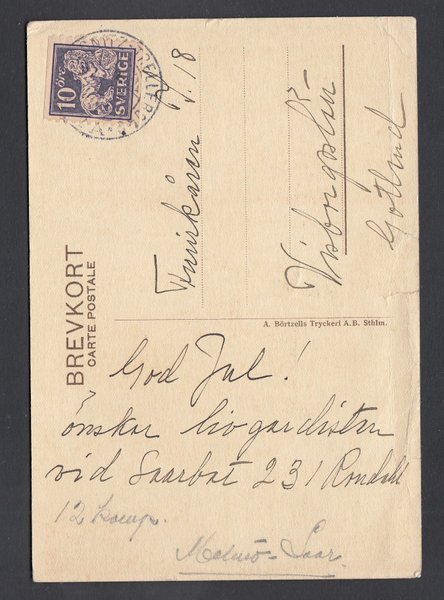 10 ÖRE
SVERIGE
BREVKORT
CARTE POSTALE
18
Visborgslän
Gotland
A. Börtzells Tryckeri A.B. Sthlm.
God Jul!
önskar livgardisten
vid Saarbat 231 Rondahl
12 komp.
Malmö - Saar.